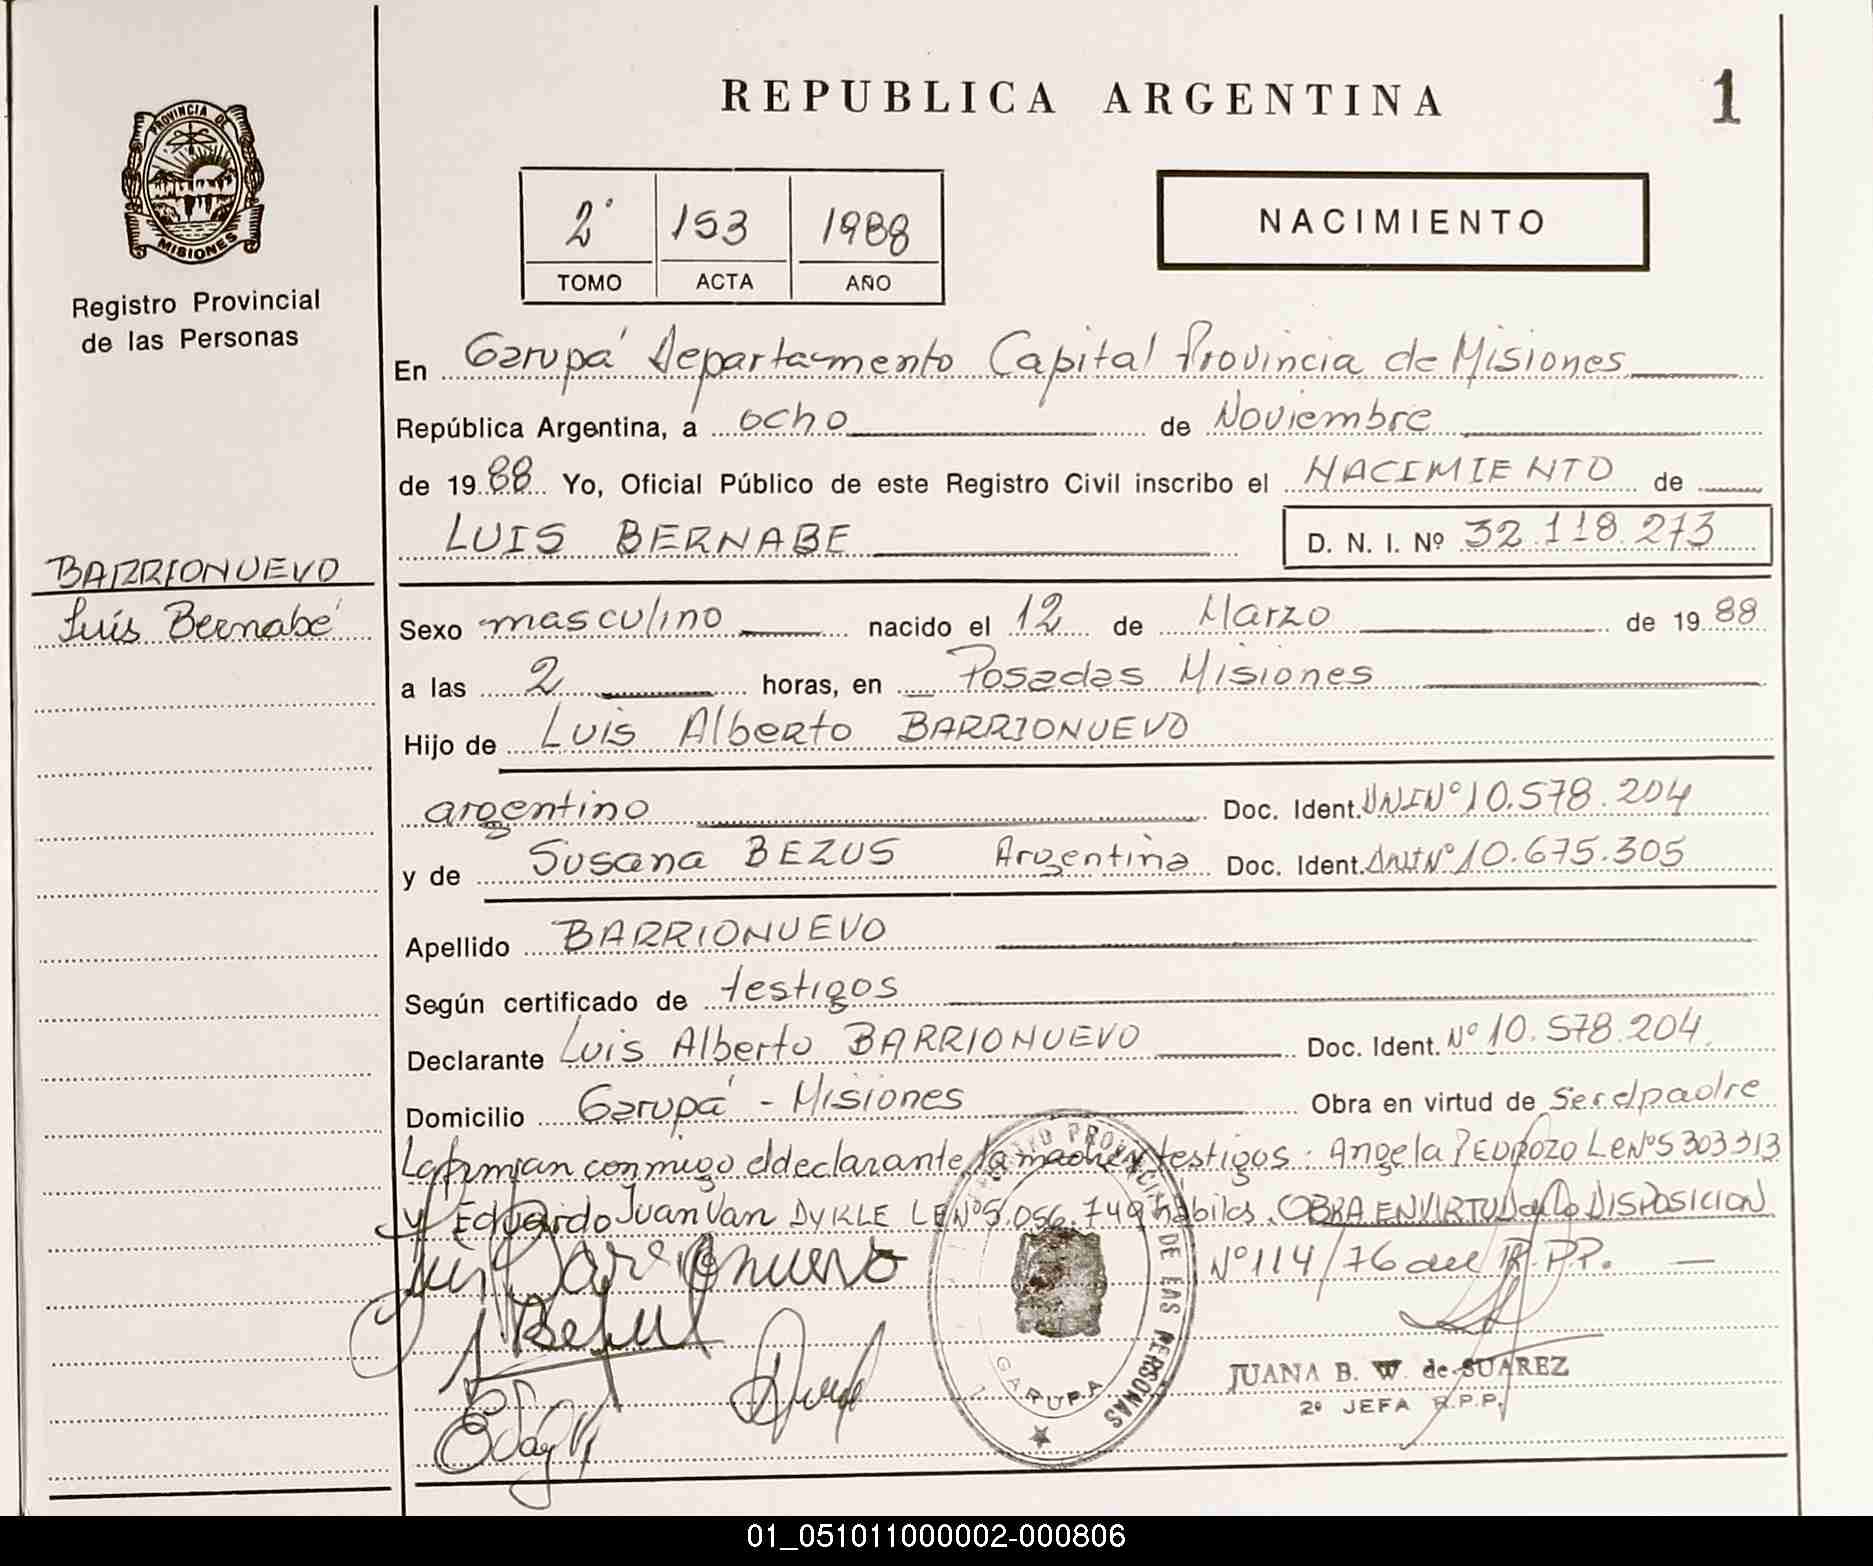 REPUBLICA ARGENTINA
1
PROVINCIA DE
MISIONES
Registro Provincial
de las Personas
2° 153 1988
TOMO ACTA AÑO
NACIMIENTO
En Garupá Departamento Capital Provincia de Misiones
República Argentina, a ocho de Noviembre
de 1988 Yo, Oficial Público de este Registro Civil inscribo el NACIMIENTO de
LUIS BERNABE D. N. I. Nº 32.118.273
BARRIONUEVO
Luis Bernabé
Sexo masculino nacido el 12 de Marzo de 1988
a las 2 horas, en Posadas Misiones
Hijo de Luis Alberto BARRIONUEVO
argentino Doc. Ident. DNI Nº 10.578.204
y de Susana BEZUS Argentina Doc. Ident. DNI Nº 10.675.305
Apellido BARRIONUEVO
Según certificado de testigos
Declarante Luis Alberto BARRIONUEVO Doc. Ident. Nº 10.578.204
Domicilio Garupá - Misiones Obra en virtud de ser el padre
La firman conmigo el declarante, la madre y testigos: Angela PEDROZO LE Nº 5303313
y Eduardo Juan Van DYKLE LE Nº 5.056.749 hábiles. OBRA EN VIRTUD a la DISPOSICION
Nº 114/76 del R.P.P.
Luis Barrionuevo
REGISTRO PROVINCIAL DE LAS PERSONAS
GARUPA
JUANA B. W. de SUAREZ
2º JEFA R.P.P.
01_051011000002-000806